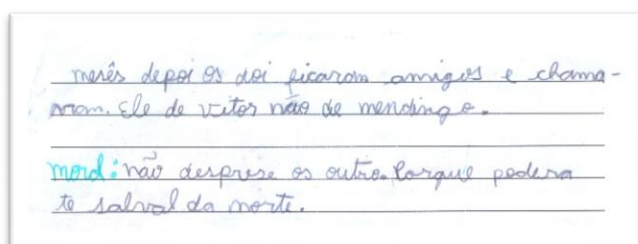 mesês depoi os doi ficaram amigos e chama-
aram. Ele de vitor não de mendingo.
mord: não desprese os outro. Porque podera
te salval da morte.